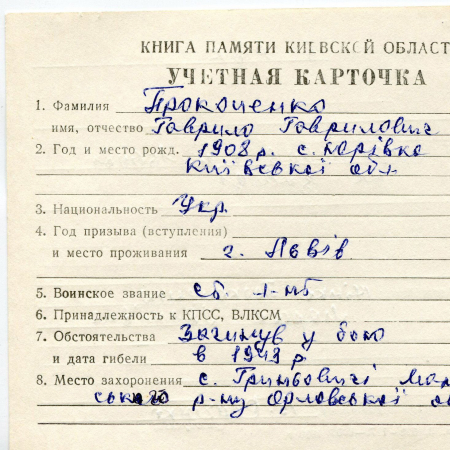 КНИГА ПАМЯТИ КИЕВСКОЙ ОБЛАСТ
УЧЕТНАЯ КАРТОЧКА
1. Фамилия Прокопенко
имя, отчество Гаврило Гаврилович
2. Год и место рожд. 1908 р. с.
Київської обл.
3. Национальность Укр.
4. Год призыва (вступления)
и место проживания г. Львів
5. Воинское звание
6. Принадлежность к КПСС, ВЛКСМ
7. Обстоятельства Загинув у бою
и дата гибели в 1943 р.
8. Место захоронения с.
ського р-ну Орловської